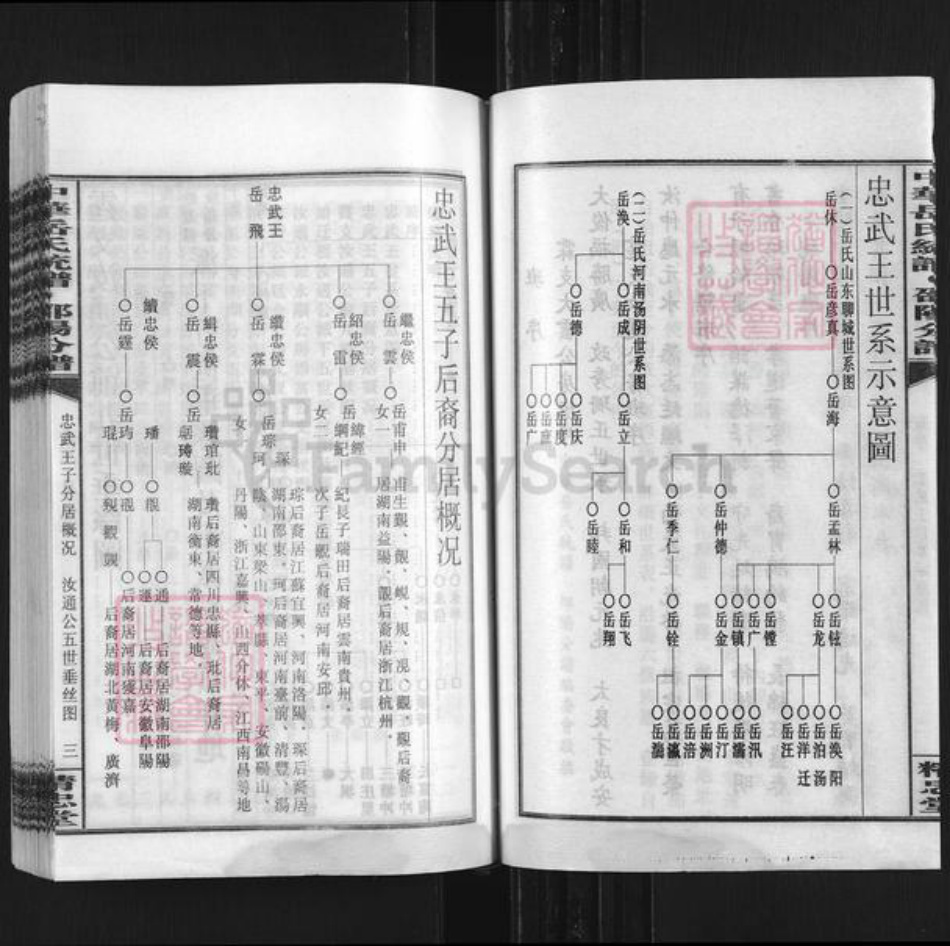 忠武王世系示意圖
(一)岳氏山东聊城世系图
岳休
岳彦真
岳海
岳孟林
岳仲德
岳季仁
岳铉
岳龙
岳镗
岳广
岳镇
岳金
岳铨
岳涣
岳泊
岳洋
岳汪
迁汤阳
岳汛
岳濡
岳汀
岳洲
岳涪
岳瀛
(二)岳氏河南汤阴世系图
岳涣
岳成
岳德
岳立
岳庆
岳度
岳庭
岳广
岳和
岳睦
岳飞
岳翔
忠武王五子后裔分居概况
忠武王
岳飛
繼忠侯
岳雲
紹忠侯
岳雷
纘忠侯
岳霖
緝忠侯
岳震
續忠侯
岳霆
岳甫申
女一
岳緯經
綱紀
女二
岳琮琛珂
女
岳
琨
璠
甫生觀、
居湖南益陽、
后裔居浙江杭州。
紀長子瑞田后裔居雲南貴州、
次子岳觀后裔居河南安邱
琮后裔居江蘇宜興、河南洛陽、琛后裔居
湖南邵東、珂后裔居河南臺前、清豐、湯
陰、山東梁山、莘縣、東平、安徽碭山、
丹陽、浙江嘉興、山西分休、江西南昌等地
瓚后裔居四川忠縣、玭后裔居
湖南衡東、常德等地。
通
后裔居湖南邵陽
運
后裔居安徽阜陽
后裔居河南獲嘉
后裔居湖北黃梅、廣濟
忠武王子分居概况
汝通公五世垂丝图
三
精忠堂
中華岳氏統譜
邵陽分譜
FamilySearch